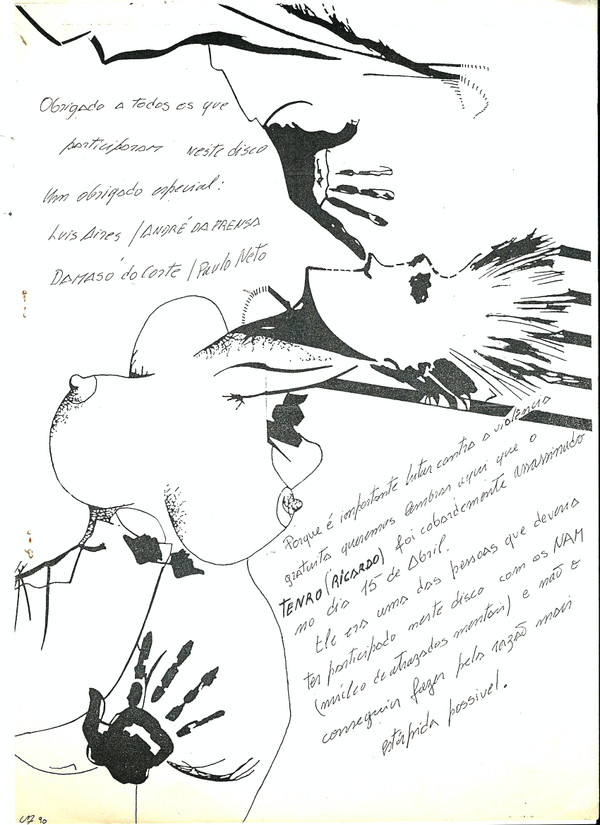 Obrigado a todos os que
participaram neste disco
Um obrigado especial:
Luis Aires / ANDRÉ DA PRENSA
DAMASO do Corte / Paulo Neto
Porque é importante lutar contra a violencia
gratuita queremos lembrar aqui que o
TENRO (RICARDO) foi cobardemente assassinado
no dia 15 de Abril.
Ele era uma das pessoas que deveria
ter participado neste disco com os NAM
(núcleo de atrazados mentais) e não o
conseguiu fazer pela razão mais
estúpida possivel.
90